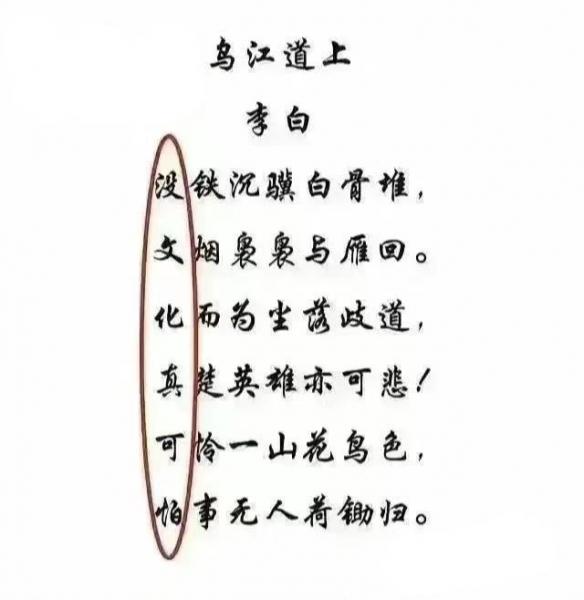 乌江道上
李白
没铁沉骥白骨堆，
文烟袅袅与雁回。
化而为尘落歧道，
真楚英雄亦可悲！
可怜一山花鸟色，
怕事无人荷锄归。